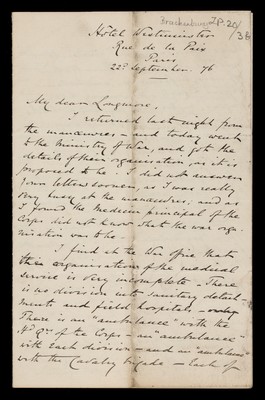 Brackenbury
Hôtel Westminster
Rue de la Paix
Paris
22d September. 76
My dear Longmore,
I returned last night from
the manœuvres - and today went
to the Ministry of War, and got the
details of their organisation, as it is
proposed to be. I did not answer
your letters sooner, as I was really
very busy at the manœuvres; and as
I found the Medecin principal of the
Corps did not know what the war orga-
nisation was to be.
I find at the War Office that
their organisation of the medical
service is very incomplete. There
is no division into sanitary detach-
ments and field hospitals
There is an "ambulance" with the
Hd Qrs of the Corps - an "ambulance"
with each division - and an "ambulance"
with the Cavalry brigade - Each of